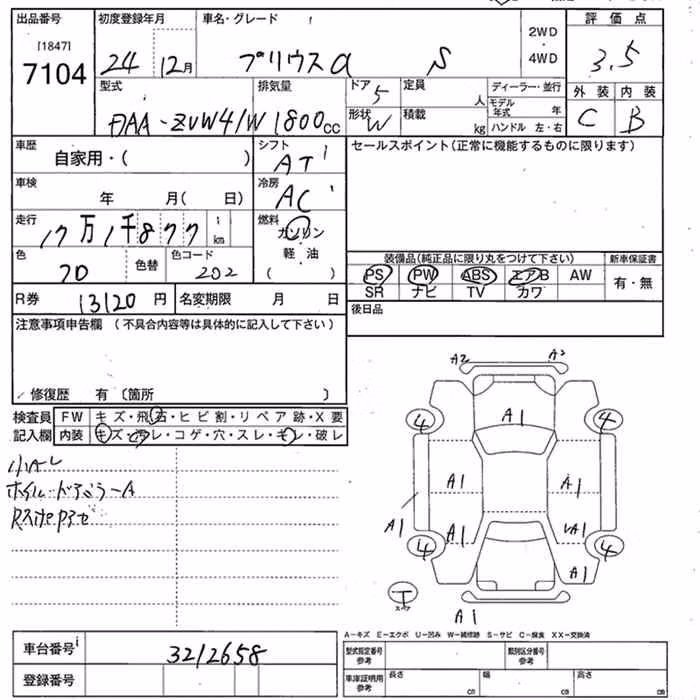 出品番号
[1847]
7104
初度登録年月
24 12月
車名・グレード
プリウスα S
2WD
・
4WD
評価点
3.5
外装 内装
C B
型式
DAA-ZVW41W
排気量
1800cc
ドア 5
形状 W
定員 人
積載 kg
ディーラー・並行
モデル年式 年
ハンドル 左・右
車歴
自家用・( )
シフト
AT
車検
年 月( 日)
冷房
AC
走行
17万1千877 km
燃料
ガソリン
・
軽油
( )
色
70
色替
色コード
202
R券 13120 円 名変期限 月 日
セールスポイント(正常に機能するものに限ります)
装備品(純正品に限り丸をつけて下さい) 新車保証書
PS PW ABS エアB AW
SR ナビ TV カワ
有・無
後日品
注意事項申告欄 (不具合内容等は具体的に記入して下さい)
修復歴 有 〔箇所 〕
検査員記入欄
FW キズ・飛石・ヒビ割・リペア跡・X要
内装 キズ・汚レ・コゲ・穴・スレ・キレ・破レ
小Aし
A2 A3
4 A1 4
A1 A1
A1 A1 A1
4 4
A1
T
スペア
A1
A−キズ E−エクボ U−凹み W−補修跡 S−サビ C−腐食 XX−交換済
車台番号 3212658
登録番号
型式指定番号
参考
類別区分番号
参考
車庫証明用
参考
長さ cm 幅 cm 高さ cm